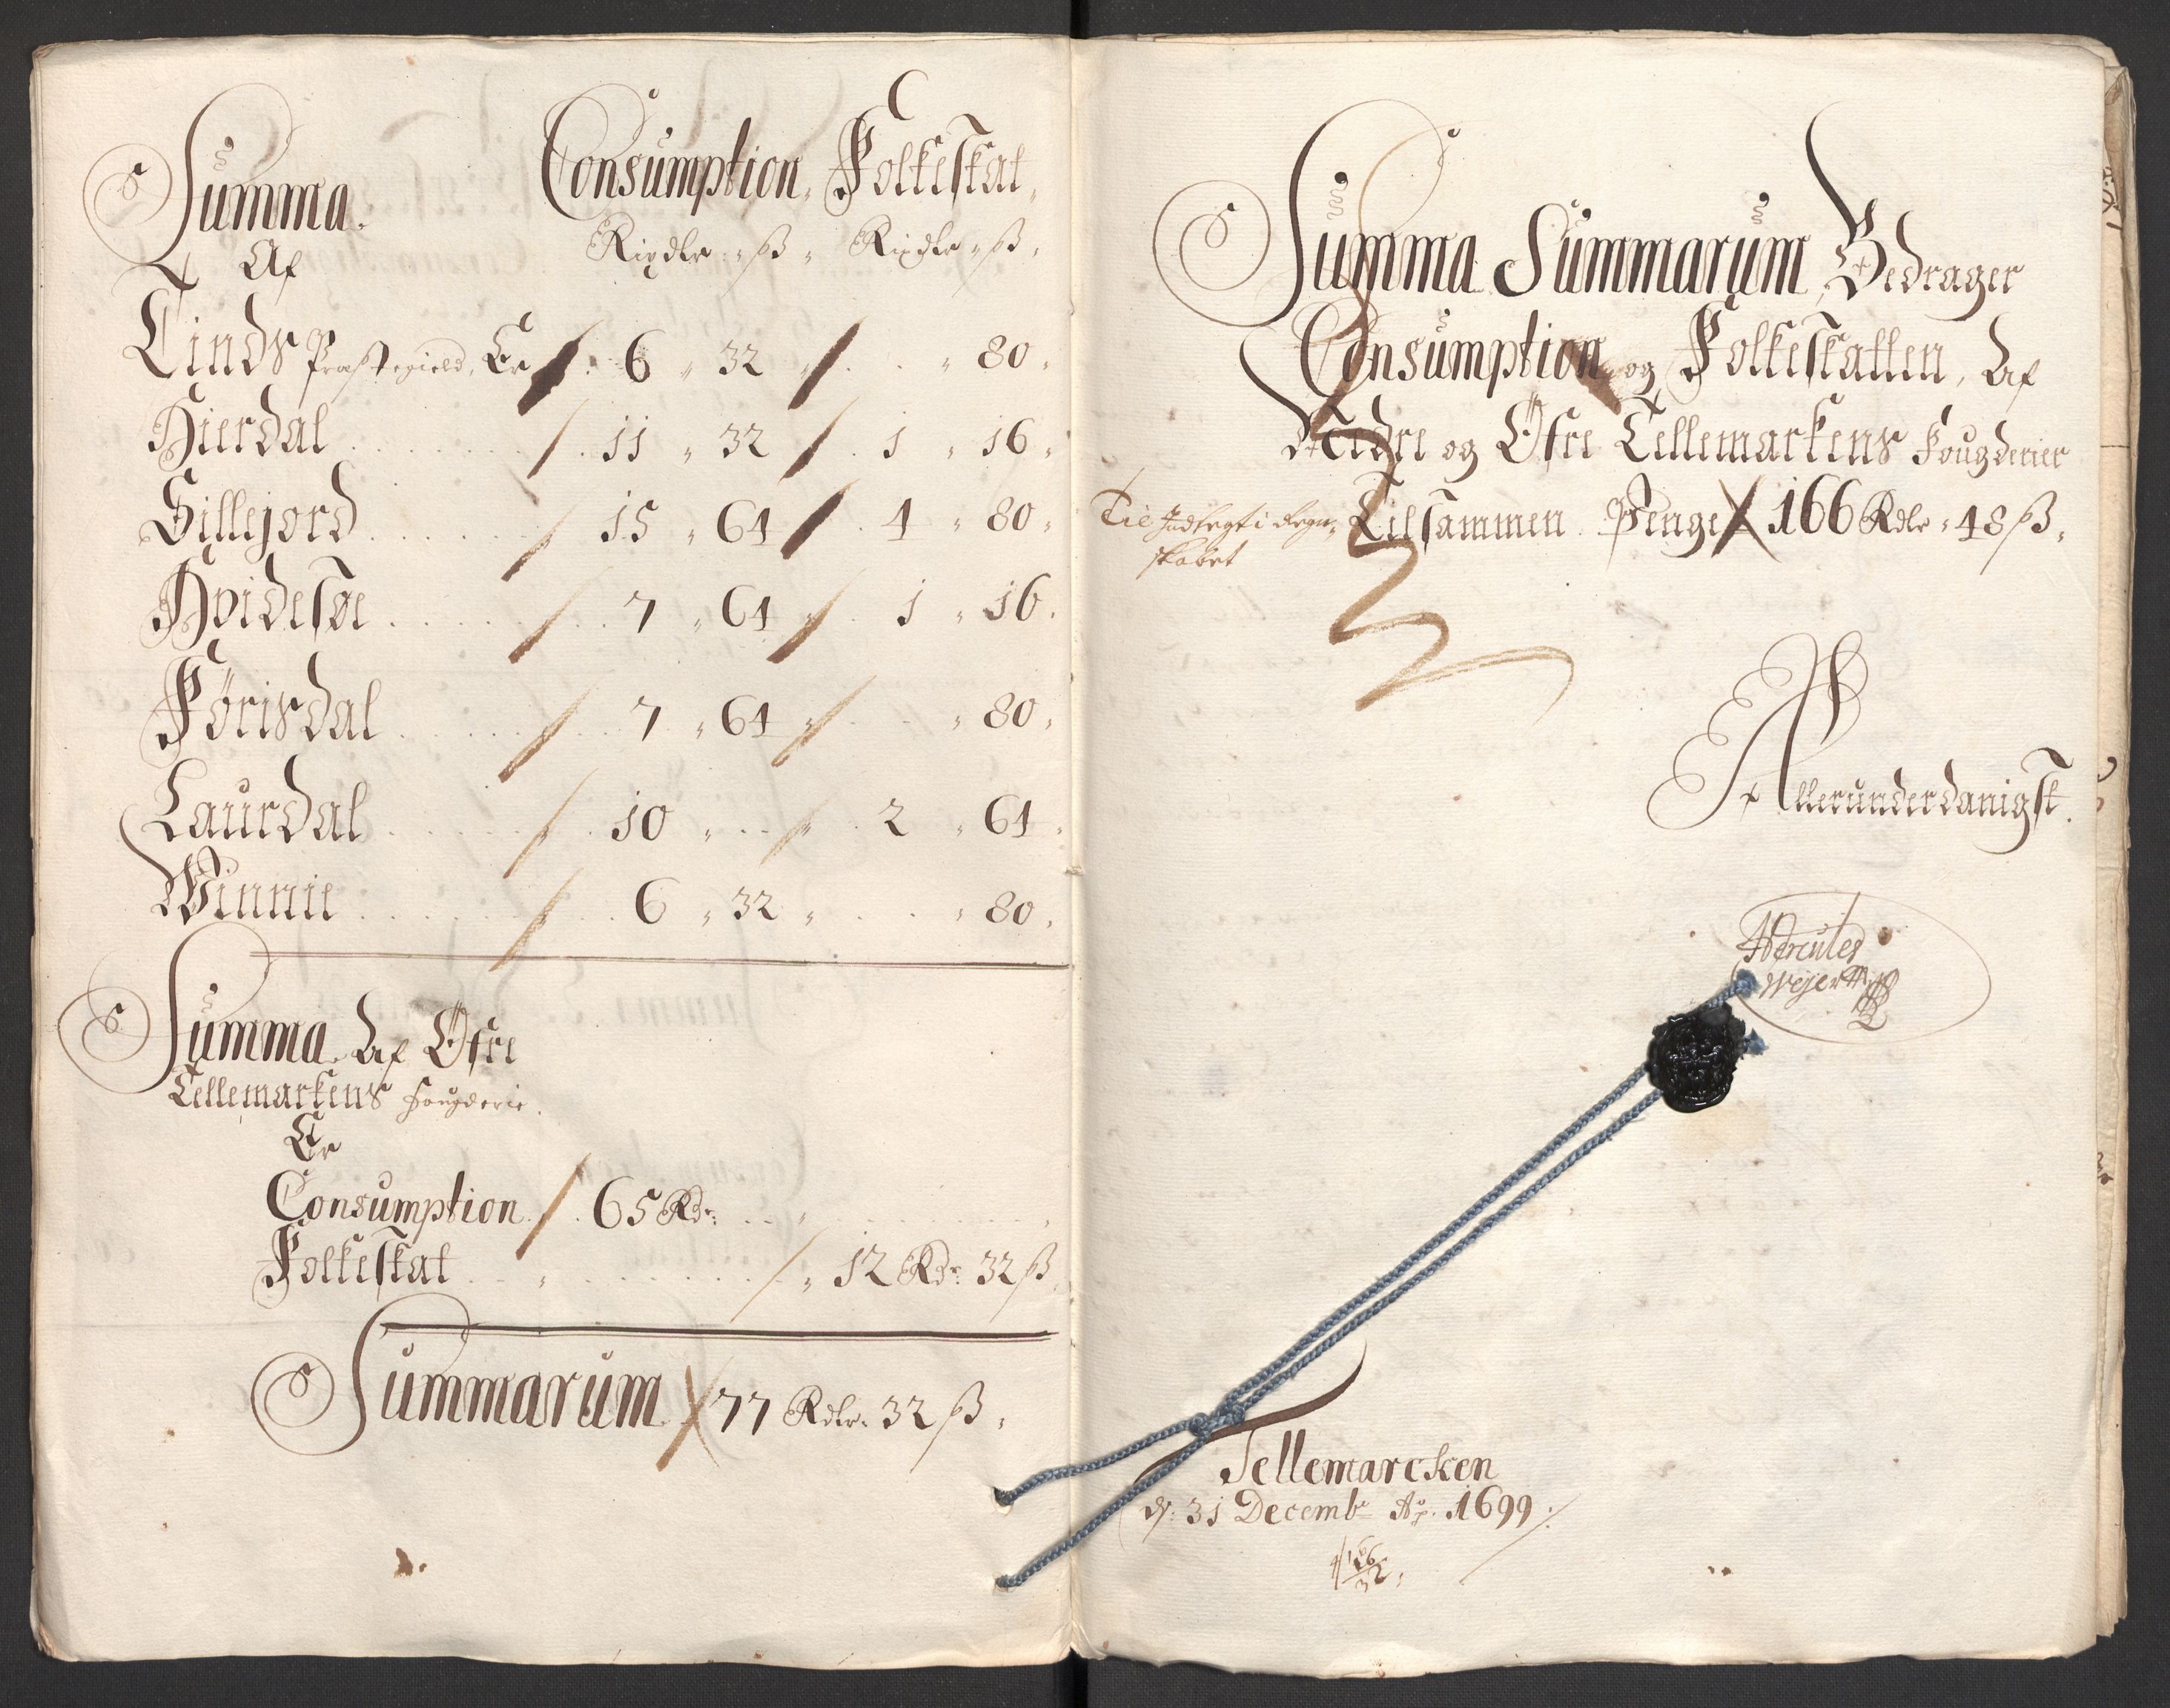 Summa. Consumption, Folkeskat,
Af Rixdlr: " ß " Rixdlr " ß "
Tinds Præstegield, Er 6 " 32 " . . " 80 "
Hierdal . . . . . 11 " 32 . 1 " 16 "
Sillejord . . . . . 15 " 64 . 4 " 80 "
Hvidesøe . . . . . 7 " 64 . 1 " 16 "
Förisdal . . . . . 7 " 64 " . . " 80 "
Laurdal . . . . . 10 " . . " 2 " 64 "
Winnie . . . . . 6 " 32 " . . " 80 "
Summa. Af Öfre
Tellemarkens Fougderie.
Er
Consumption . 65 Rdr:
Folkeskat . . . . . 12 Rdr: 32 ß
Summarum 77 Rdlr. 32 ß "
Summa Summarum, Bedrager
Consumption og Folkeskatten, Af
Nedre og Öfre Tellemarkens Fougderier
Tilsammen Penge 166 Rdlr " 48 ß "
Til Indtegt i Regn-
skabet
Allerunderdanigst.
Hercules
Weyer
Tellemarcken
d: 31 Decemb: Ao. 1699 ./.